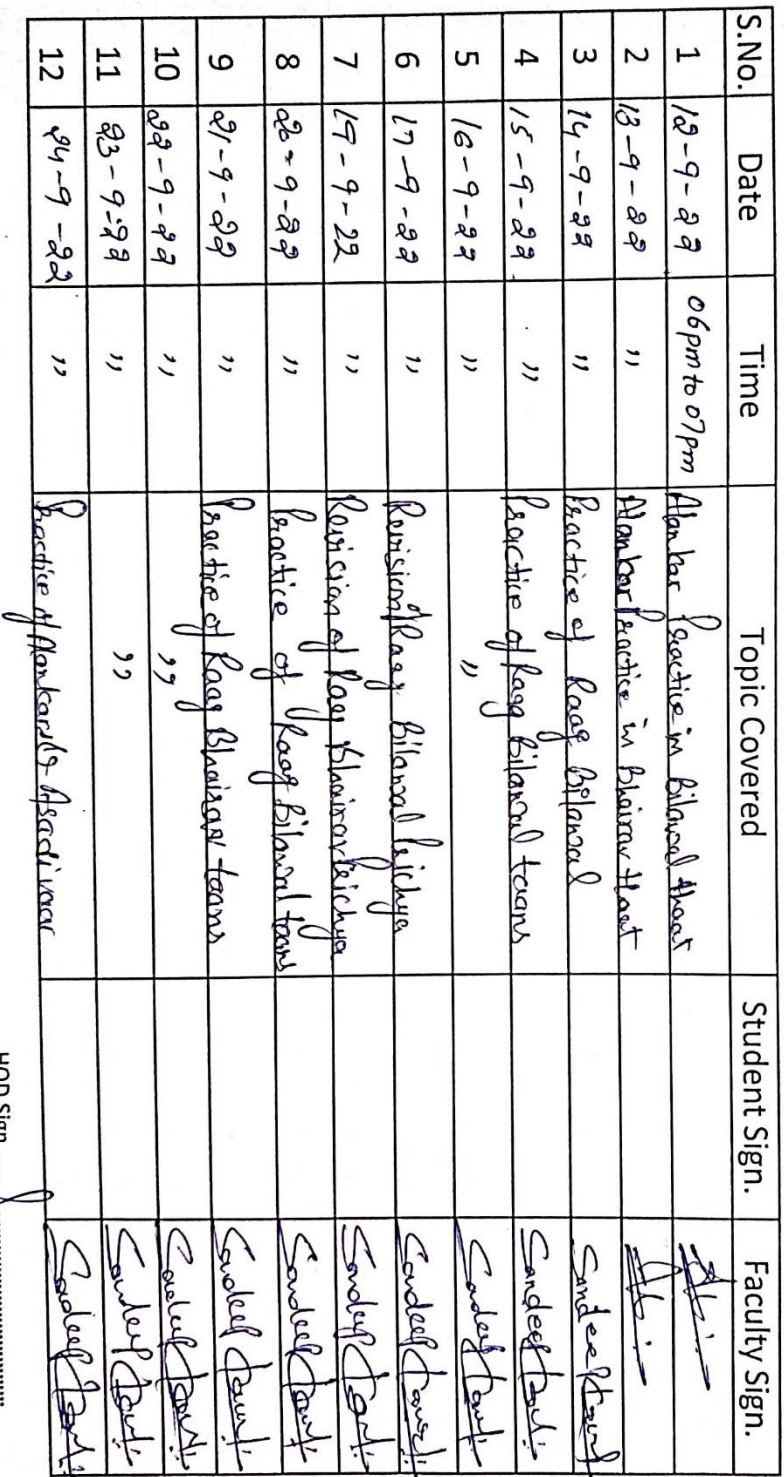 S.No. Date Time Topic Covered Student Sign. Faculty Sign.
1 12-9-22 06pm to 07pm Alankar Practice in Bilawal thaat
2 13-9-22 " Alankar Practice in Bhairav thaat
3 14-9-22 " Practice of Raag Bilawal Sandeep Kaur
4 15-9-22 " Practice of Raag Bilawal taans Sandeep Kaur
5 16-9-22 " " Sandeep Kaur
6 17-9-22 " Revision of Raag Bilawal Sandeep Kaur
7 19-9-22 " Revision of Raag Bhairav Sandeep Kaur
8 20-9-22 " Practice of Raag Bilawal taans Sandeep Kaur
9 21-9-22 " Practice of Raag Bhairav taans Sandeep Kaur
10 22-9-22 " " Sandeep Kaur
11 23-9-22 " " Sandeep Kaur
12 24-9-22 " Practice of Alankars & Asadivaar Sandeep Kaur
HOD Sign